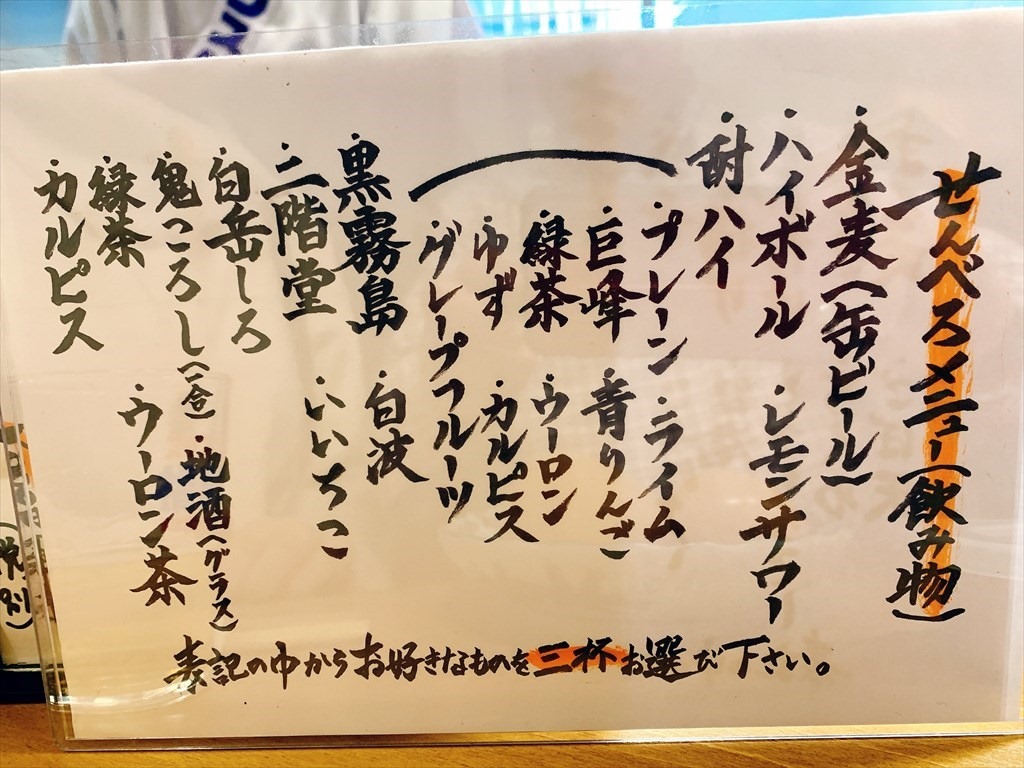 せんべろメニュー(飲み物)
・金麦(缶ビール)
・ハイボール ・レモンサワー
・酎ハイ
・プレーン ・ライム
・巨峰 ・青りんご
・緑茶 ・ウーロン
・ゆず ・カルピス
・グレープフルーツ
・黒霧島 ・白波
・二階堂 ・いいちこ
・白岳しろ
・鬼ころし(一合) ・地酒(グラス)
・緑茶 ・ウーロン茶
・カルピス
表記の中からお好きなものを三杯お選び下さい。